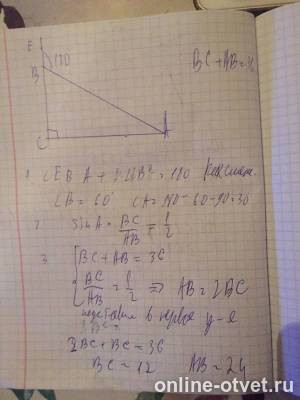 E
120
B
BC + AB = 36
C
A
1. ∠EBA + ∠CBA = 180 как смеж.
∠B = 60° ∠A = 180 - 60 - 90 = 30
2. sin A = BC/AB = 1/2
3. BC + AB = 36
BC/AB = 1/2 ⇒ AB = 2BC
в первое ур-е
2BC + BC = 36
BC = 12 AB = 24
online-otvet.ru